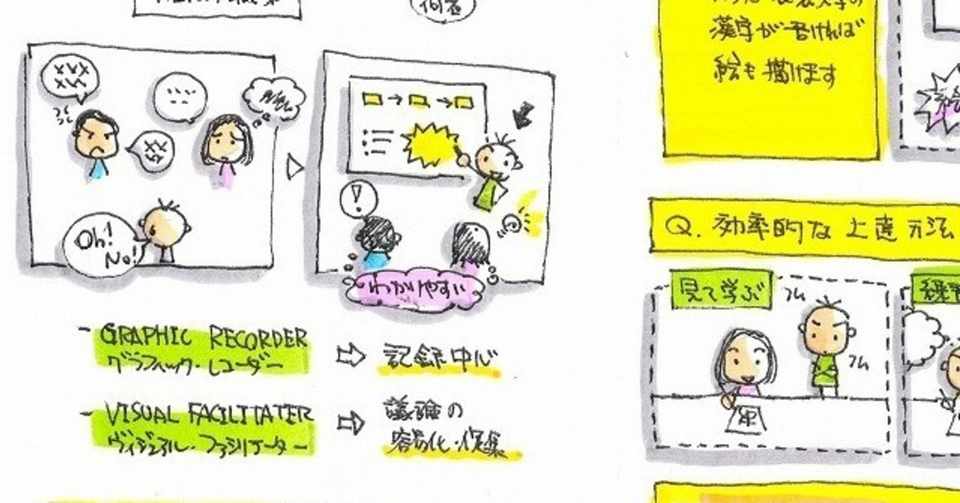 何者
XVX
XXX
Oh!
No!
!
わかりやすい
- GRAPHIC RECORDER
グラフィック・レコーダー
⇨ 記録中心
- VISUAL FACILITATER
ヴィジュアル・ファシリテーター
⇨ 議論の
容易化・促進
漢字が書ければ
絵も描けます
Q. 効率的な上達方法
見て学ぶ
フム
フム